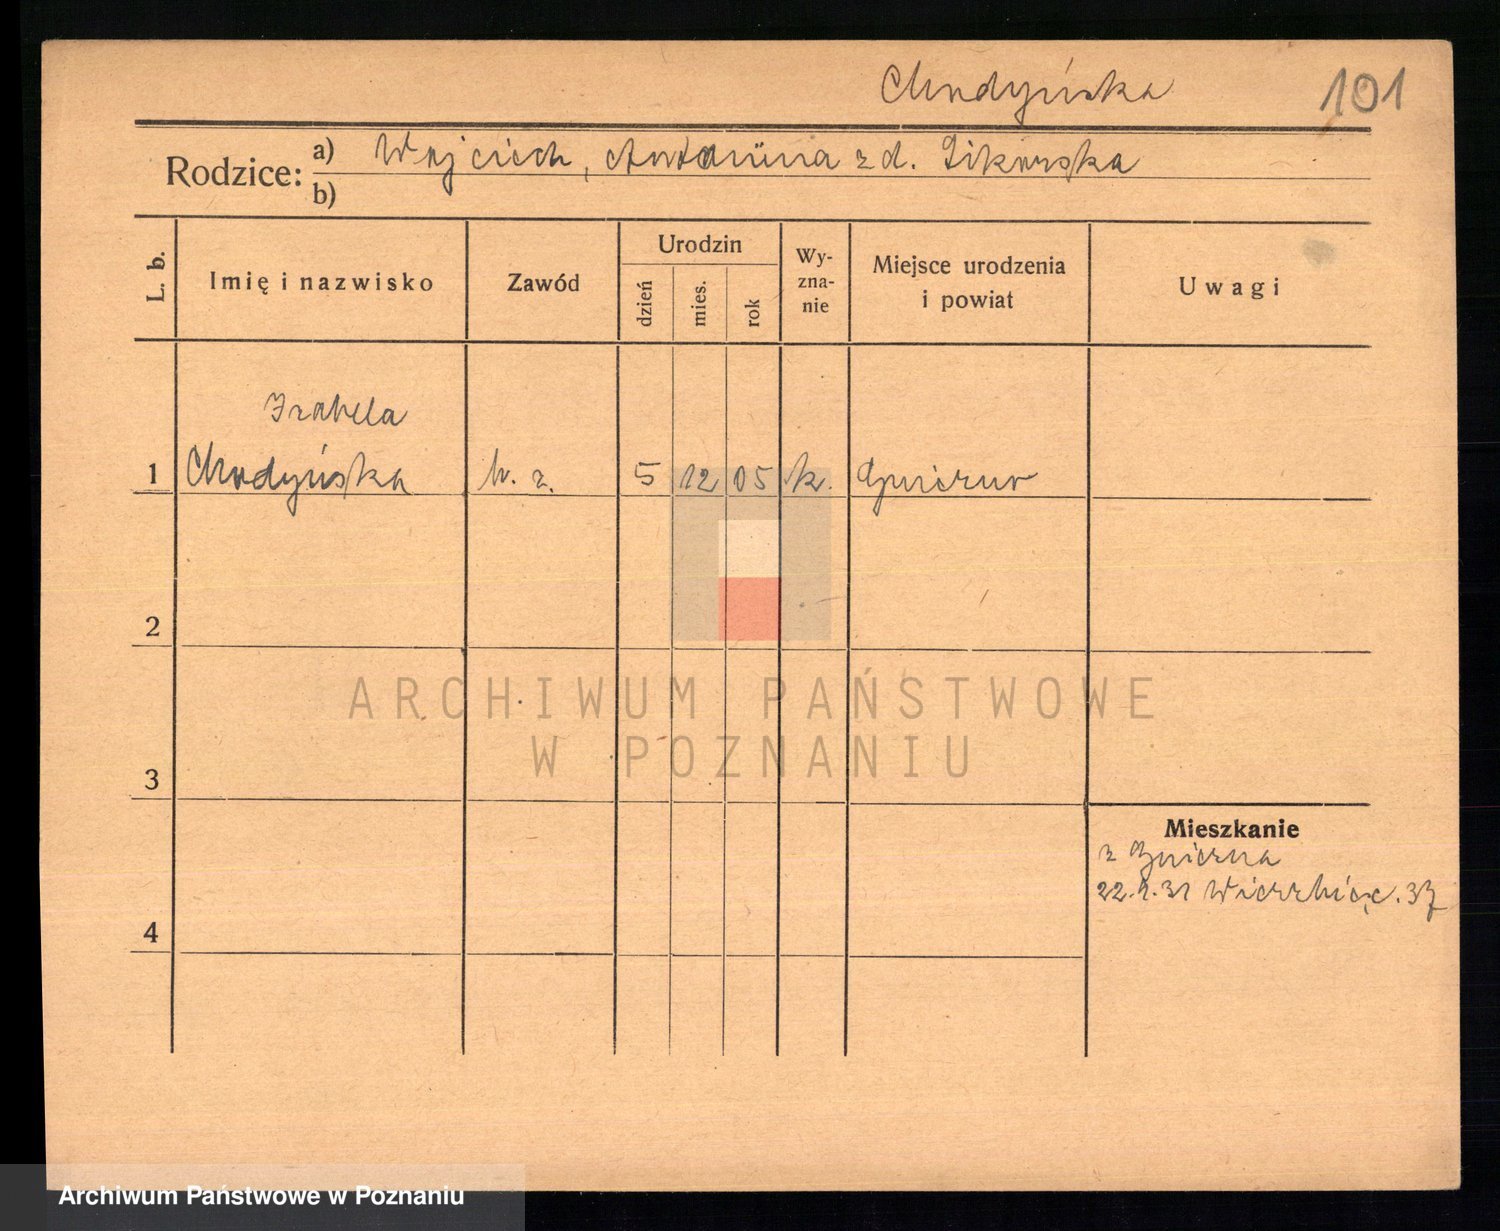 Chodyńska 101
Rodzice: a) Wojciech, Antonina z d. Sikorska
b)
L. b. Imię i nazwisko Zawód Urodzin dzień mies. rok Wyznanie Miejsce urodzenia i powiat Uwagi
Izabela
1 Chodyńska b. z. 5 12 05 k. Gniezno
2
ARCHIWUM PAŃSTWOWE
W POZNANIU
3
Mieszkanie
z Gniezna
22.1.31 Wierzbięc. 37
4
Archiwum Państwowe w Poznaniu